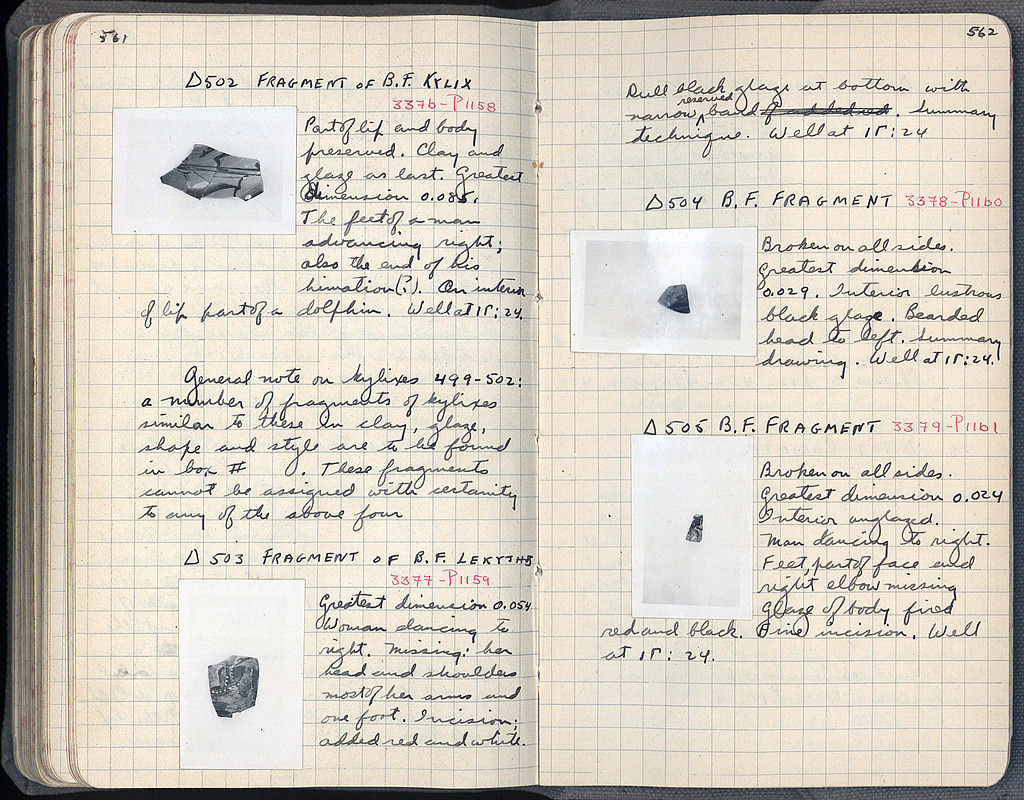 561
Δ502 FRAGMENT OF B.F. KYLIX
3376-P1158
Part of lip and body
preserved. Clay and
glaze as last. Greatest
dimension 0.085.
The feet of a man
advancing right;
also the end of his
himation(?). On interior
of lip part of a dolphin. Well at 15:24.
General note on kylixes 499-502:
a number of fragments of kylixes
similar to these in clay, glaze,
shape and style are to be found
in box # . These fragments
cannot be assigned with certainity
to any of the above four
Δ503 FRAGMENT OF B.F. LEKYTHOS
3377-P1159
Greatest dimension 0.054
Woman dancing to
right. Missing: her
head and shoulders
most of her arms and
one foot. Incision;
added red and white.
562
Dull black glaze at bottom with
narrow reserved band of added red. Summary
technique. Well at 15:24
Δ504 B.F. FRAGMENT 3378-P1160
Broken on all sides.
Greatest dimension
0.029. Interior lustrous
black glaze. Bearded
head to left. Summary
drawing. Well at 15:24.
Δ505 B.F. FRAGMENT 3379-P1161
Broken on all sides.
Greatest dimension 0.024
Interior unglazed.
Man dancing to right.
Feet, part of face and
right elbow missing
Glaze of body fired
red and black. Fine incision. Well
at 15:24.